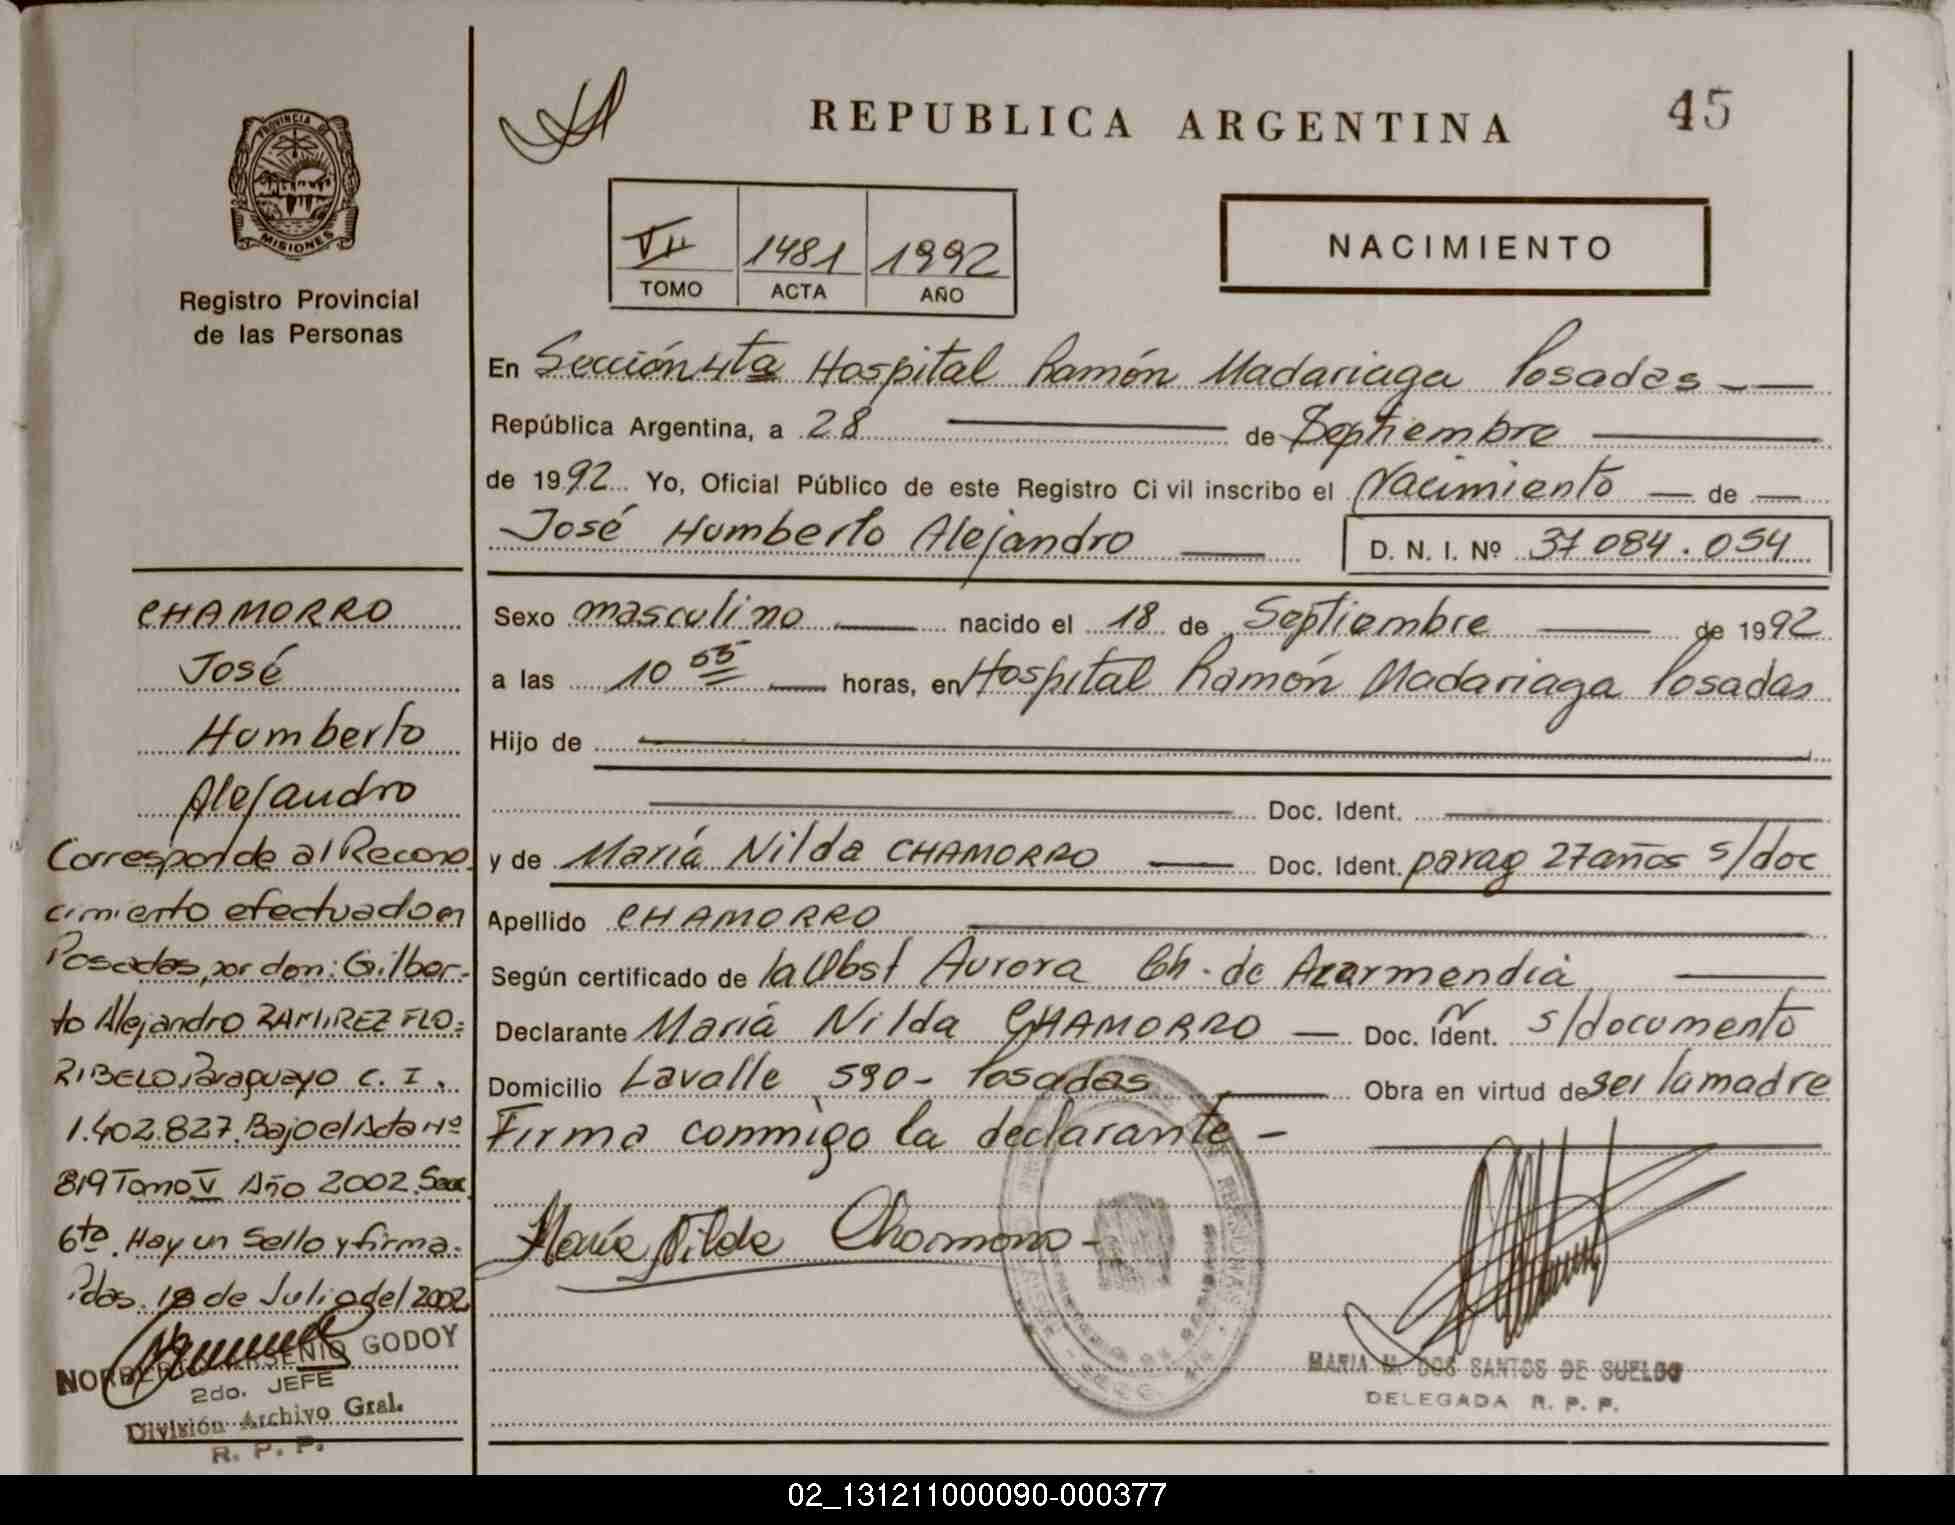 REPUBLICA ARGENTINA
45
PROVINCIA DE
MISIONES
Registro Provincial
de las Personas
VII 1481 1992
TOMO ACTA AÑO
NACIMIENTO
En Sección 4ta Hospital Ramón Madariaga Posadas
República Argentina, a 28 de Septiembre
de 1992 Yo, Oficial Público de este Registro Civil inscribo el Nacimiento de
José Humberto Alejandro D. N. I. Nº 37 084.054
Sexo masculino nacido el 18 de Septiembre de 1992
a las 10 55 horas, en Hospital Ramón Madariaga Posadas
Hijo de
Doc. Ident.
y de María Nilda CHAMORRO Doc. Ident. parag 27 años s/doc
Apellido CHAMORRO
Según certificado de la Obst Aurora Ch. de Azarmendia
Declarante María Nilda CHAMORRO Doc. Ident. s/documento
Domicilio Lavalle 590- Posadas Obra en virtud de ser la madre
Firma conmigo la declarante -
María Nilda Chamorro-
MARIA M. DOS SANTOS DE SUELDO
DELEGADA R. P. P.
CHAMORRO
José
Humberto
Alejandro
Corresponde al Recono
cimiento efectuado en
Posadas, por don: Gilber-
to Alejandro RAMIREZ FLO=
RIBELO, Paraguayo C. I.
1.402.827. Bajo el Acta Nº
819 Tomo V Año 2002. Secc
6ta. Hay un Sello y firma.
Pdas. 18 de Julio del 2002
NORBERTO ARSENIO GODOY
2do. JEFE
División Archivo Gral.
R. P. P.
02_131211000090-000377